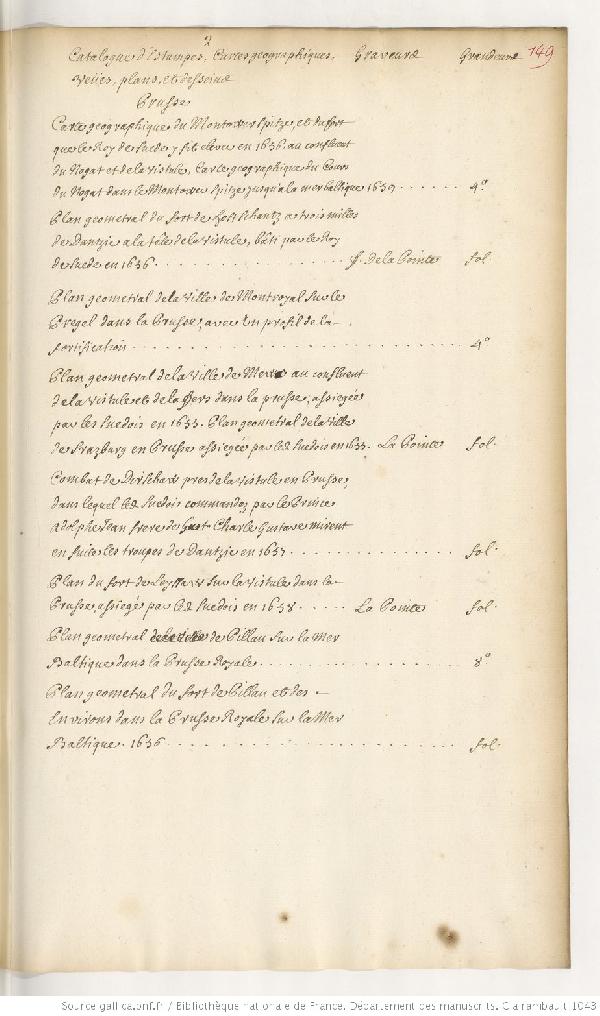 2
Catalogue d'Estampes, Cartes geographiques, Graveurs Grandeurs 149
Veües, plans, et desseins
Prusse
Carte geographique du Montower Spitze, et du fort
que le Roy de Suede y fit elever en 1656. au confluent
du Nogat et de la Vistule. Carte geographique du Cours
du Nogat dans le Montower Spitze jusqu'a la mer baltique 1659 . . . . . . 4°
Plan geometral du fort de hoft Schantz a trois milles
de Dantzic a la tête de la Vistule, bâti par le Roy
de Suede en 1656 . . . . . . . . . . . . . . . . . . J. de la Pointe fol.
Plan geometral de la Ville de Montroyal sur le
Pregel dans la Prusse, avec un profil de la
fortification . . . . . . . . . . . . . . . . . . . . . . . . . . . . 4°
Plan geometral de la Ville de au confluent
de la Vistule et de la Fers dans la prusse, assiegée
par les Suedois en 1655. Plan geometral de la Ville
de Strazburg en Prusse assiegée par les Suedois en 1655. La Pointe fol.
Combat de Dirschaw pres de la Vistule en Prusse,
dans lequel les Suedois commandez par le Prince
Adolphe Jean frere de Charle Gustave mirent
en fuite les troupes de Dantzic en 1657 . . . . . . . . . . . . . . fol.
Plan du fort de sur la Vistule dans la
Prusse, assiegé par les Suedois en 1658 . . . . . La Pointe fol.
Plan geometral de Pillau sur la Mer
Baltique dans la Prusse Royale . . . . . . . . . . . . . . . . . . 8°
Plan geometral du fort de Pillau et des
Environs dans la Prusse Royale sur la Mer
Baltique. 1656 . . . . . . . . . . . . . . . . . . . . . . . . . . fol.
Source gallica.bnf.fr / Bibliothèque nationale de France. Département des manuscrits. Clairambault 1043